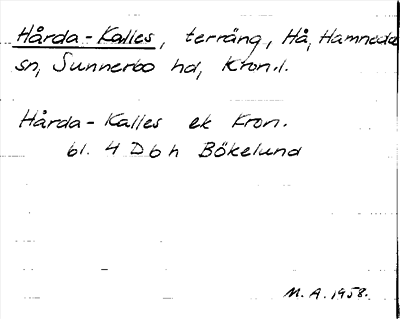 Hårda-Kalles, terräng, Hå, Hamneda
sn, Sunnerbo hd, Kron.l.
Hårda-Kalles ek Kron.
bl. 4 D b h Bökelund
M.A. 1958.